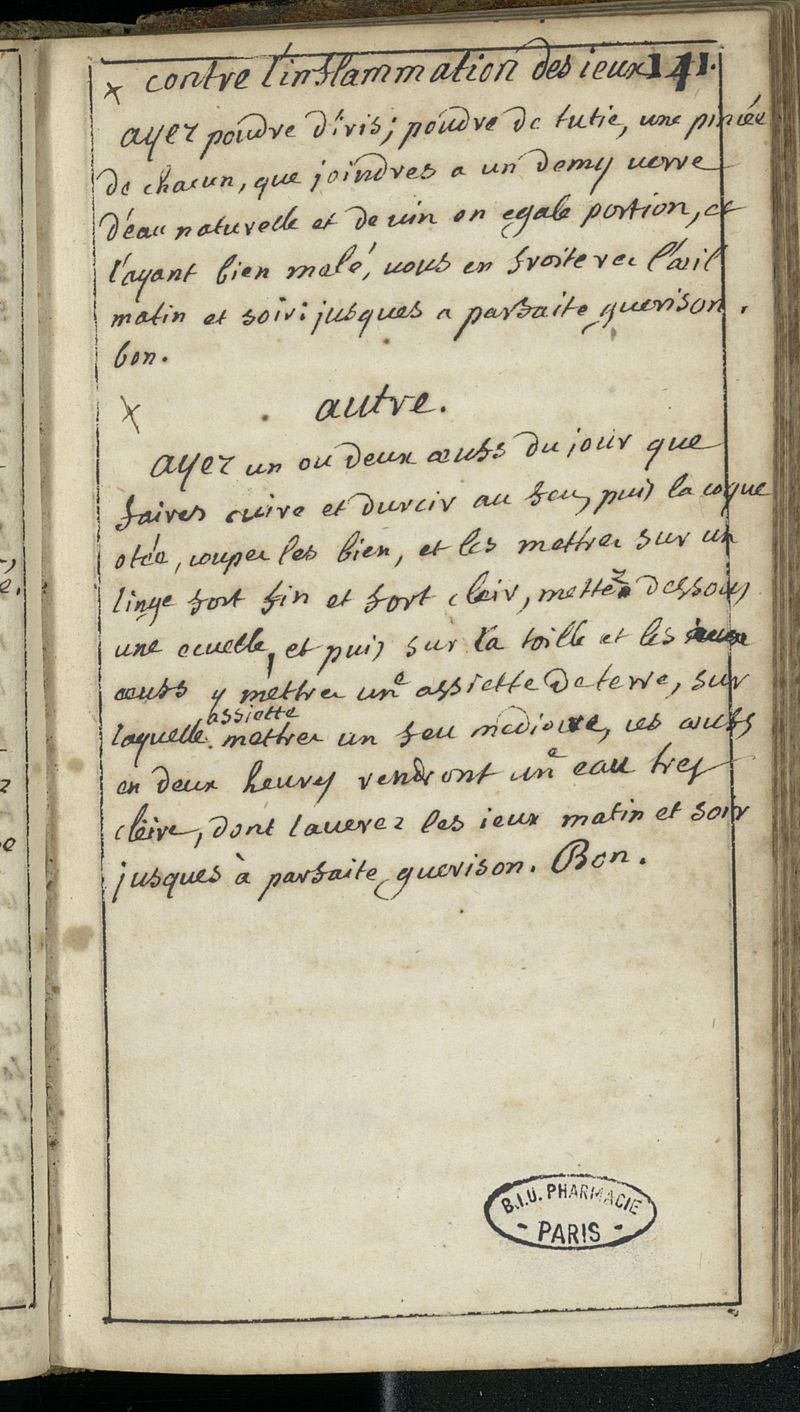 x contre l'inflammation des ieux 141.
ayez poudre d'iris; poudre de tutie, une pincée
de chacun, que joindres a un demy verre
d'eau naturelle et de vin en egale portion, et
l'ayant bien melé, vous en froiterez l'œil
matin et soir: jusques a parfaite guerison.
bon.
x autre.
ayez un ou deux œufs du jour que
faires cuire et durcir au feu, puis la coque
otée, coupez les bien, et les mettrez sur un
linge fort fin et fort cleir, mettez dessous
une ecuelle, et puis sur la toille et les
œufs y mettrez une assiette de terre, sur
laquelle assiette mettrez un feu mediocre, ces œufs
en deux heures rendront une eau tres
cleire, dont laverez les ieux matin et soir
jusques à parfaite guerison. Bon.
B.I.U. PHARMACIE
- PARIS -